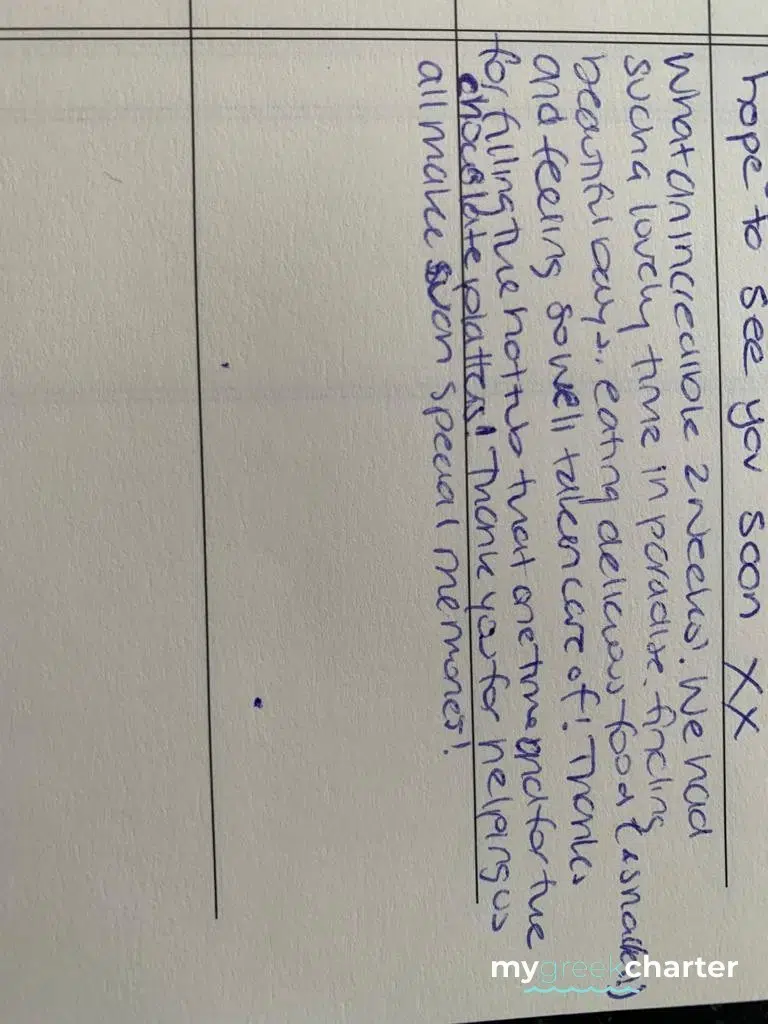 hope to see you soon XX
What an incredible 2 weeks. We had
such a lovely time in paradise. finding
beautiful bays, eating delicious food (& snacks!)
and feeling so well taken care of! Thanks
for filling the hot tub that one time and for the
chocolate platters! Thank you for helping us
all make such special memories!
mygreekcharter